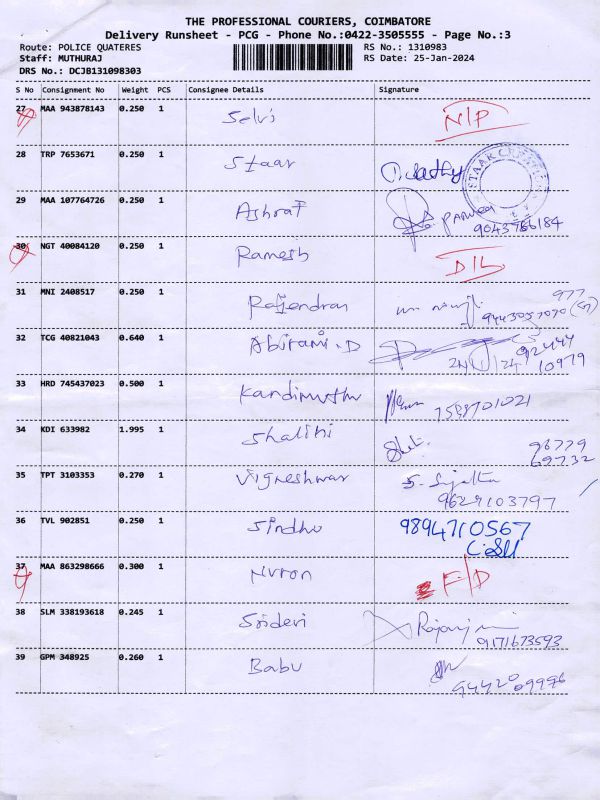 THE PROFESSIONAL COURIERS, COIMBATORE
Delivery Runsheet - PCG - Phone No.:0422-3505555 - Page No.:3
Route: POLICE QUATERES RS No.: 1310983
Staff: MUTHURAJ RS Date: 25-Jan-2024
DRS No.: DCJB131098303
S No Consignment No Weight PCS Consignee Details Signature
27 MAA 943878143 0.250 1 Selvi N/P
28 TRP 7653671 0.250 1 Staar
29 MAA 107764726 0.250 1 Ashraf
9043766184
30 NGT 40084120 0.250 1 Ramesh D/L
31 MNI 2408517 0.250 1 Rajendran
32 TCG 40821043 0.640 1 Abirami.D 92444
10979
33 HRD 745437023 0.500 1 Kandimuthu
34 KDI 633982 1.995 1 Shalini 96779
69732
35 TPT 3103353 0.270 1 Vigneshwar S. Sujatha
9629103797
36 TVL 902851 0.250 1 Sindhu 9894710567
37 MAA 863298666 0.300 1 F/D
38 SLM 338193618 0.245 1 Sridevi
9171673593
39 GPM 348925 0.260 1 Babu
9442209996